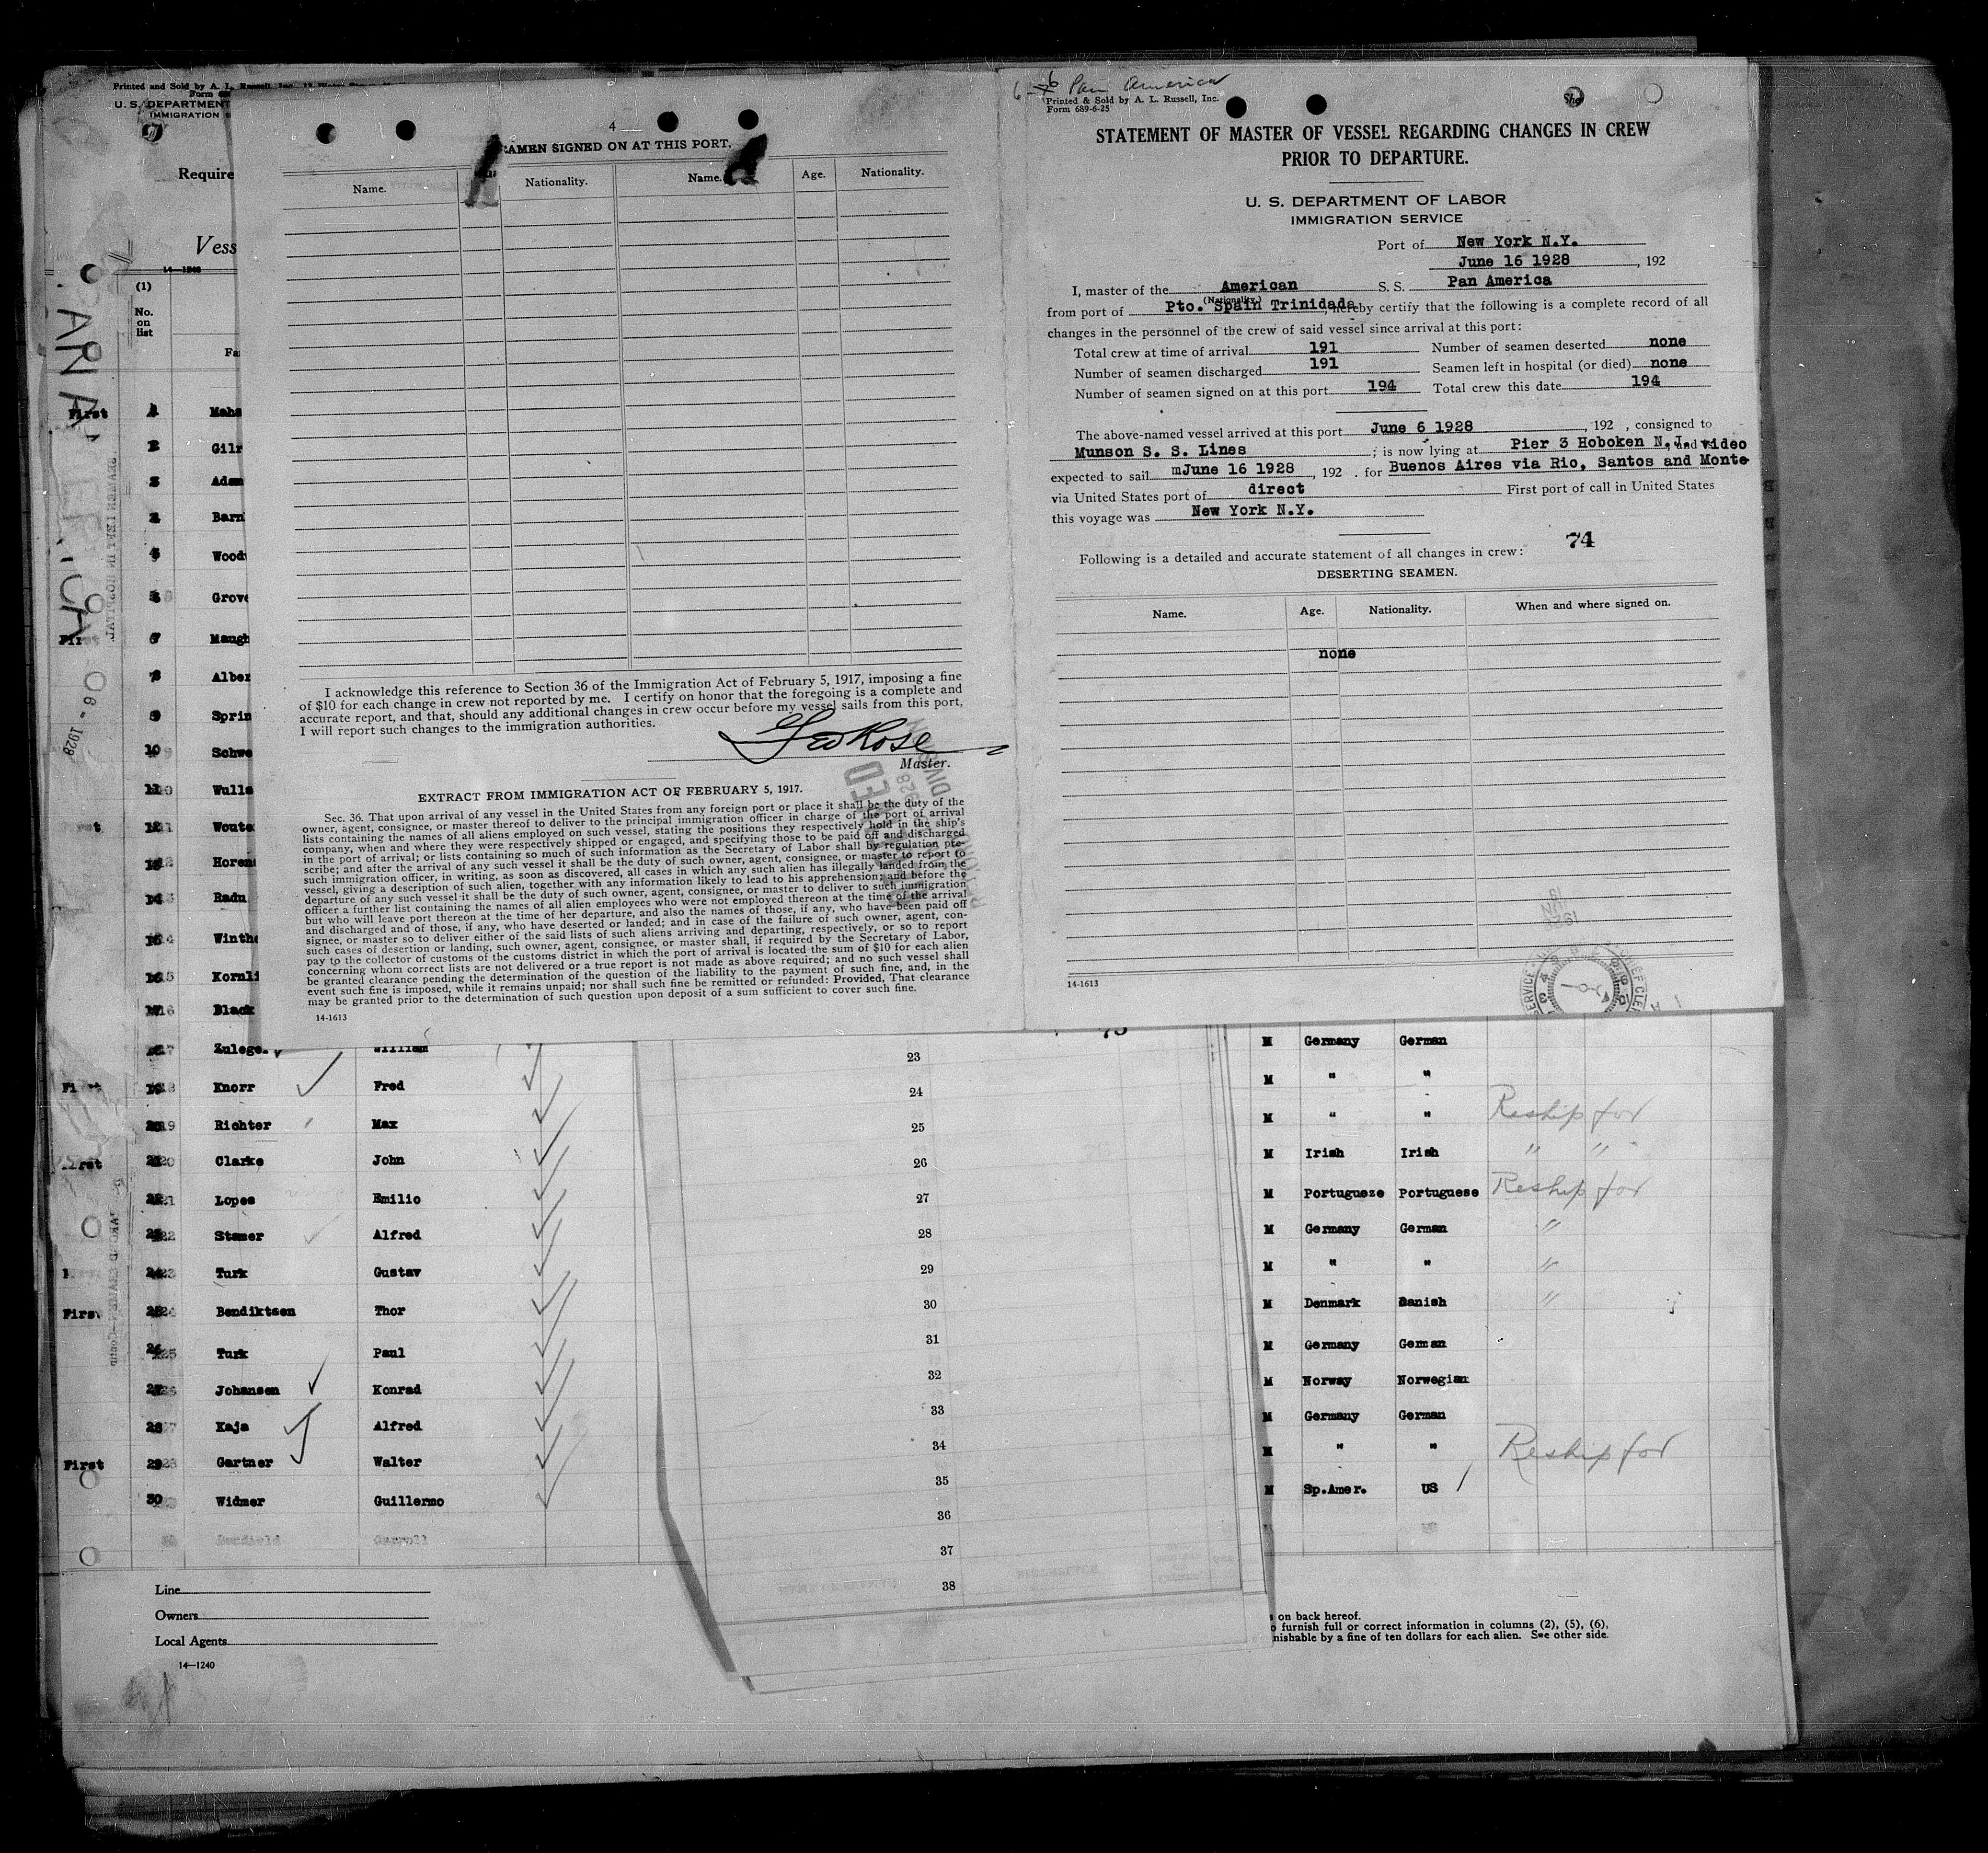 Printed and Sold by A. L. Russell, Inc.
U. S. DEPARTMENT
IMMIGRATION
Require
Vess
14—1240
(1)
No.
on
list
Fa
First
Maha
2 Gilr
3 Adam
Barn
Wood
Grove
7 Maugh
8 Alber
9 Sprin
10 Schwe
11 Wulls
12 Woute
13 Horen
14 Radu
Winthe
Kornli
Black
4
SEAMEN SIGNED ON AT THIS PORT.
Name. Nationality. Name. Age. Nationality.
I acknowledge this reference to Section 36 of the Immigration Act of February 5, 1917, imposing a fine
of $10 for each change in crew not reported by me. I certify on honor that the foregoing is a complete and
accurate report, and that, should any additional changes in crew occur before my vessel sails from this port,
I will report such changes to the immigration authorities.
Geo Rose
Master.
EXTRACT FROM IMMIGRATION ACT OF FEBRUARY 5, 1917.
Sec. 36. That upon arrival of any vessel in the United States from any foreign port or place it shall be the duty of the
owner, agent, consignee, or master thereof to deliver to the principal immigration officer in charge of the port of arrival
lists containing the names of all aliens employed on such vessel, stating the positions they respectively hold in the ship's
company, when and where they were respectively shipped or engaged, and specifying those to be paid off and discharged
in the port of arrival; or lists containing so much of such information as the Secretary of Labor shall by regulation pre-
scribe; and after the arrival of any such vessel it shall be the duty of such owner, agent, consignee, or master to report to
such immigration officer, in writing, as soon as discovered, all cases in which any such alien has illegally landed from the
vessel, giving a description of such alien, together with any information likely to lead to his apprehension; and before the
departure of any such vessel it shall be the duty of such owner, agent, consignee, or master to deliver to such immigration
officer a further list containing the names of all alien employees who were not employed thereon at the time of the arrival
but who will leave port thereon at the time of her departure, and also the names of those, if any, who have been paid off
and discharged and of those, if any, who have deserted or landed; and in case of the failure of such owner, agent, con-
signee, or master so to deliver either of the said lists of such aliens arriving and departing, respectively, or so to report
such cases of desertion or landing, such owner, agent, consignee, or master shall, if required by the Secretary of Labor,
pay to the collector of customs of the customs district in which the port of arrival is located the sum of $10 for each alien
concerning whom correct lists are not delivered or a true report is not made as above required; and no such vessel shall
be granted clearance pending the determination of the question of the liability to the payment of such fine, and, in the
event such fine is imposed, while it remains unpaid; nor shall such fine be remitted or refunded: Provided, That clearance
may be granted prior to the determination of such question upon deposit of a sum sufficient to cover such fine.
14-1613
Pan America
Printed & Sold by A. L. Russell, Inc.
Form 689-6-25
STATEMENT OF MASTER OF VESSEL REGARDING CHANGES IN CREW
PRIOR TO DEPARTURE.
U. S. DEPARTMENT OF LABOR
IMMIGRATION SERVICE
Port of New York N.Y.
June 16 1928, 192
I, master of the American S. S. Pan America
(Nationality)
from port of Pto. Spain Trinidad, hereby certify that the following is a complete record of all
changes in the personnel of the crew of said vessel since arrival at this port:
Total crew at time of arrival 191 Number of seamen deserted none
Number of seamen discharged 191 Seamen left in hospital (or died) none
Number of seamen signed on at this port 194 Total crew this date 194
The above-named vessel arrived at this port June 6 1928, 192 , consigned to
Munson S. S. Lines ; is now lying at Pier 3 Hoboken N.J. and video
expected to sail June 16 1928, 192 . for Buenos Aires via Rio, Santos and Monte-
via United States port of direct First port of call in United States
this voyage was New York N.Y.
74
Following is a detailed and accurate statement of all changes in crew:
DESERTING SEAMEN.
Name. Age. Nationality. When and where signed on.
none
14-1613
Zulege William 23 M Germany German
Knorr Fred 24 M " "
Richter Max 25 M " " Reship for
Clarke John 26 M Irish Irish " "
Lopes Emilio 27 M Portugueze Portuguese Reship for
Stamer Alfred 28 M Germany German "
Turk Gustav 29 M " " "
First Bendiktsen Thor 30 M Denmark Danish "
Turk Paul 31 M Germany German
Johansen Konrad 32 M Norway Norwegian
Kaja Alfred 33 M Germany German
First Gartner Walter 34 M " " Reship for
30 Widmer Guillermo 35 M Sp.Amer. US
36
Carroll
37
38
Line
Owners
Local Agents
14—1240
on back hereof.
furnish full or correct information in columns (2), (5), (6),
nishable by a fine of ten dollars for each alien. See other side.